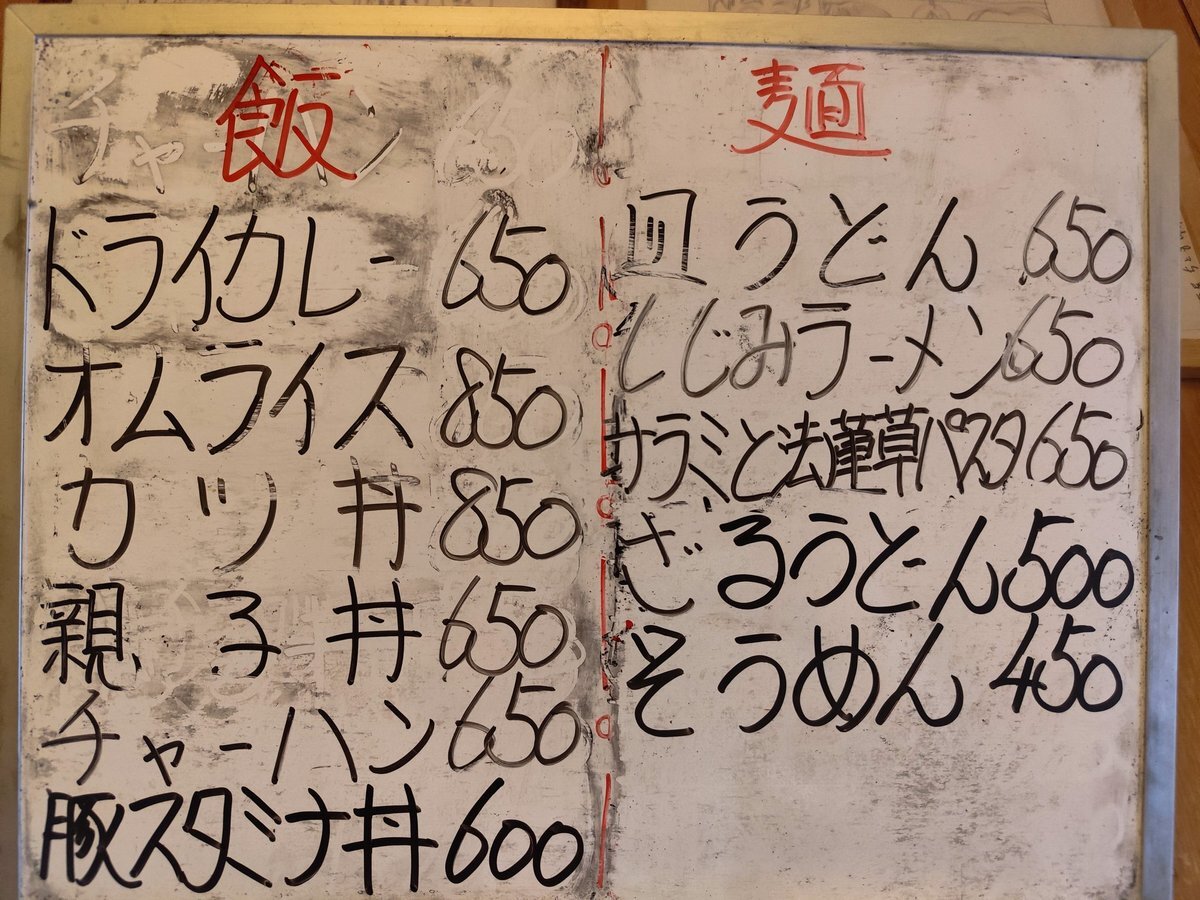 飯
ドライカレー 650
オムライス 850
カツ丼 850
親子丼 650
チャーハン 650
豚スタミナ丼 600
麺
皿うどん 650
しじみラーメン 650
サラミと法蓮草パスタ 650
ざるうどん 500
そうめん 450